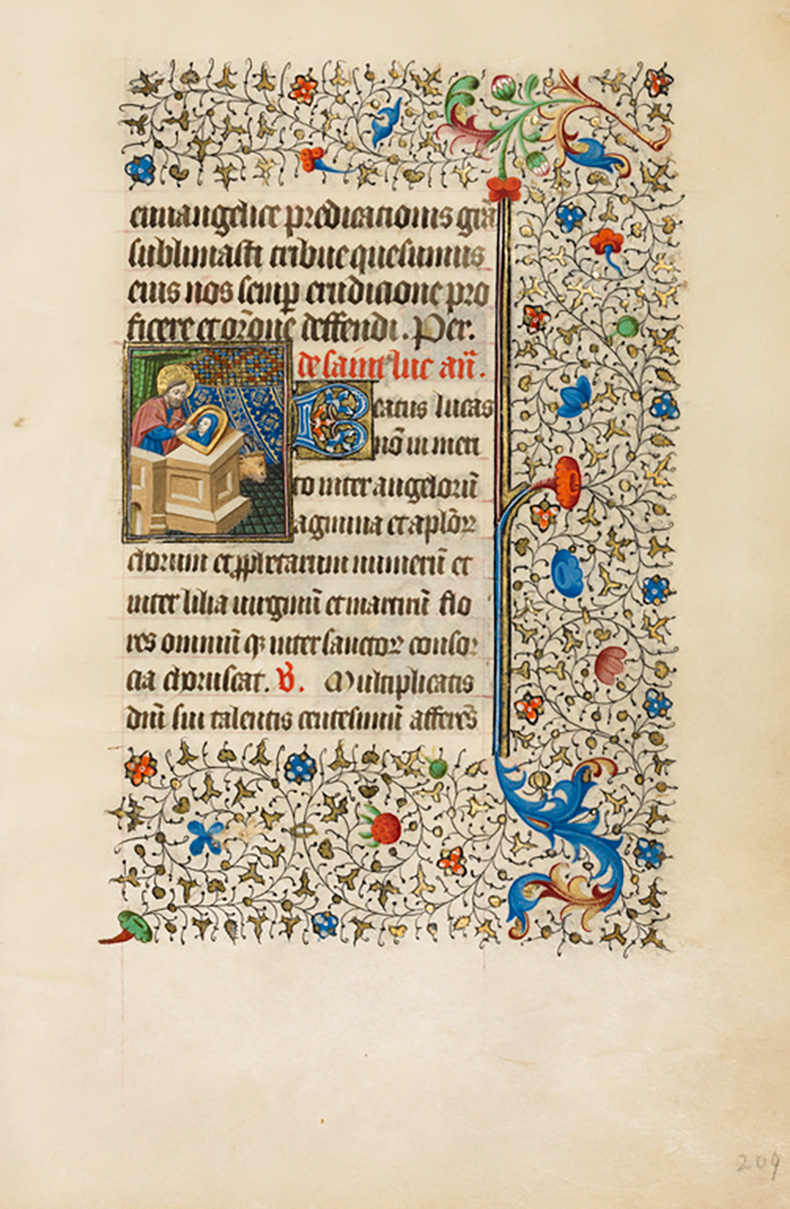 euuangelice predicacionis grã
sublimasti tribue quesumus
eius nos semp erudicione pro
ficere et orõne deffendi. Per.
de saint luc añ.
Beatus lucas
nõ in meri
to inter angelorũ
agmina et aplõꝝ
chorum et ꝓphetarum numerũ et
inter lilia uirginũ et martirũ flo
res omniũ qꝫ inter sanctoꝝ conso
cia choruscat. ℣. Multiplicatis
dñi sui talentis centesimũ afferẽs
209